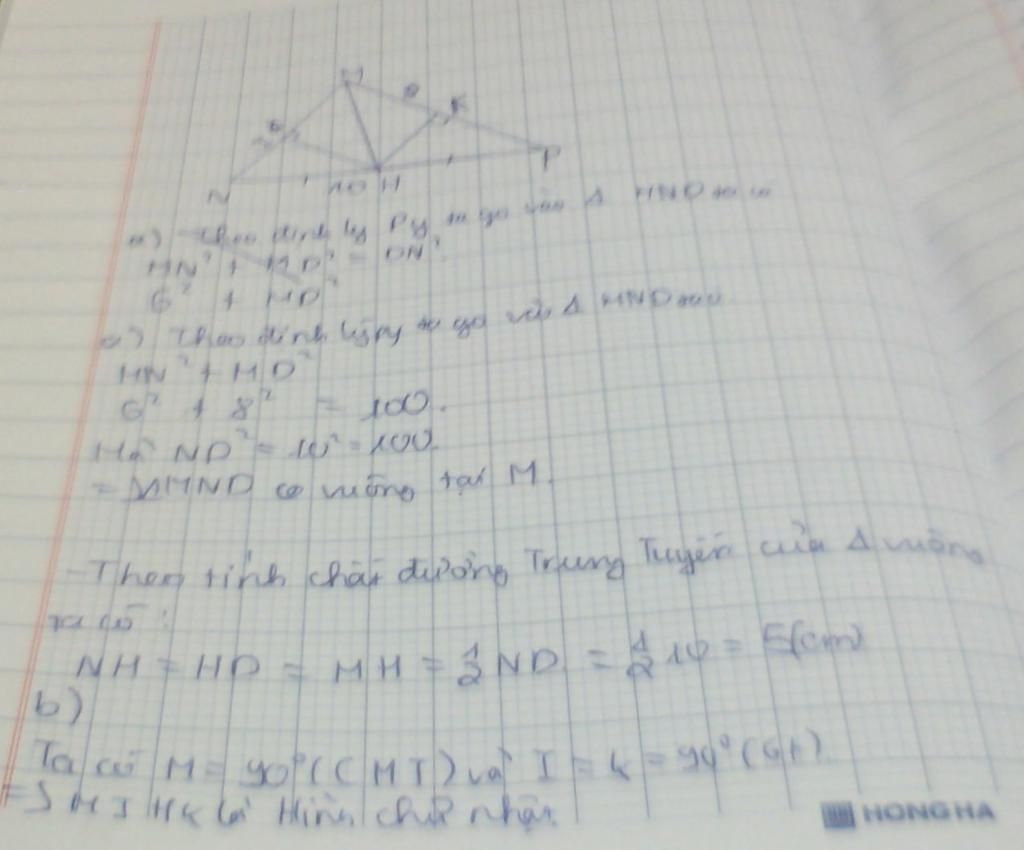 M
8 K
6
N 10 H P
a) Theo định lý Py ta go vào Δ MND ta có
MN² + MD² = DN²
6² + MD²
a) Theo định lý py ta go vào Δ MND
MN² + MD²
6² + 8² = 100.
Mà ND² = 10² = 100
=> ΔMND vuông tại M.
- Theo tính chất đường Trung Tuyến của Δ vuông
ta có:
NH = HD = MH = 1/2 ND = 1/2 10 = 5(cm)
b)
Ta có M = 90° (CMT) và I = K = 90° (Gt).
=> MIHK là Hình chữ nhật.
HONG HA